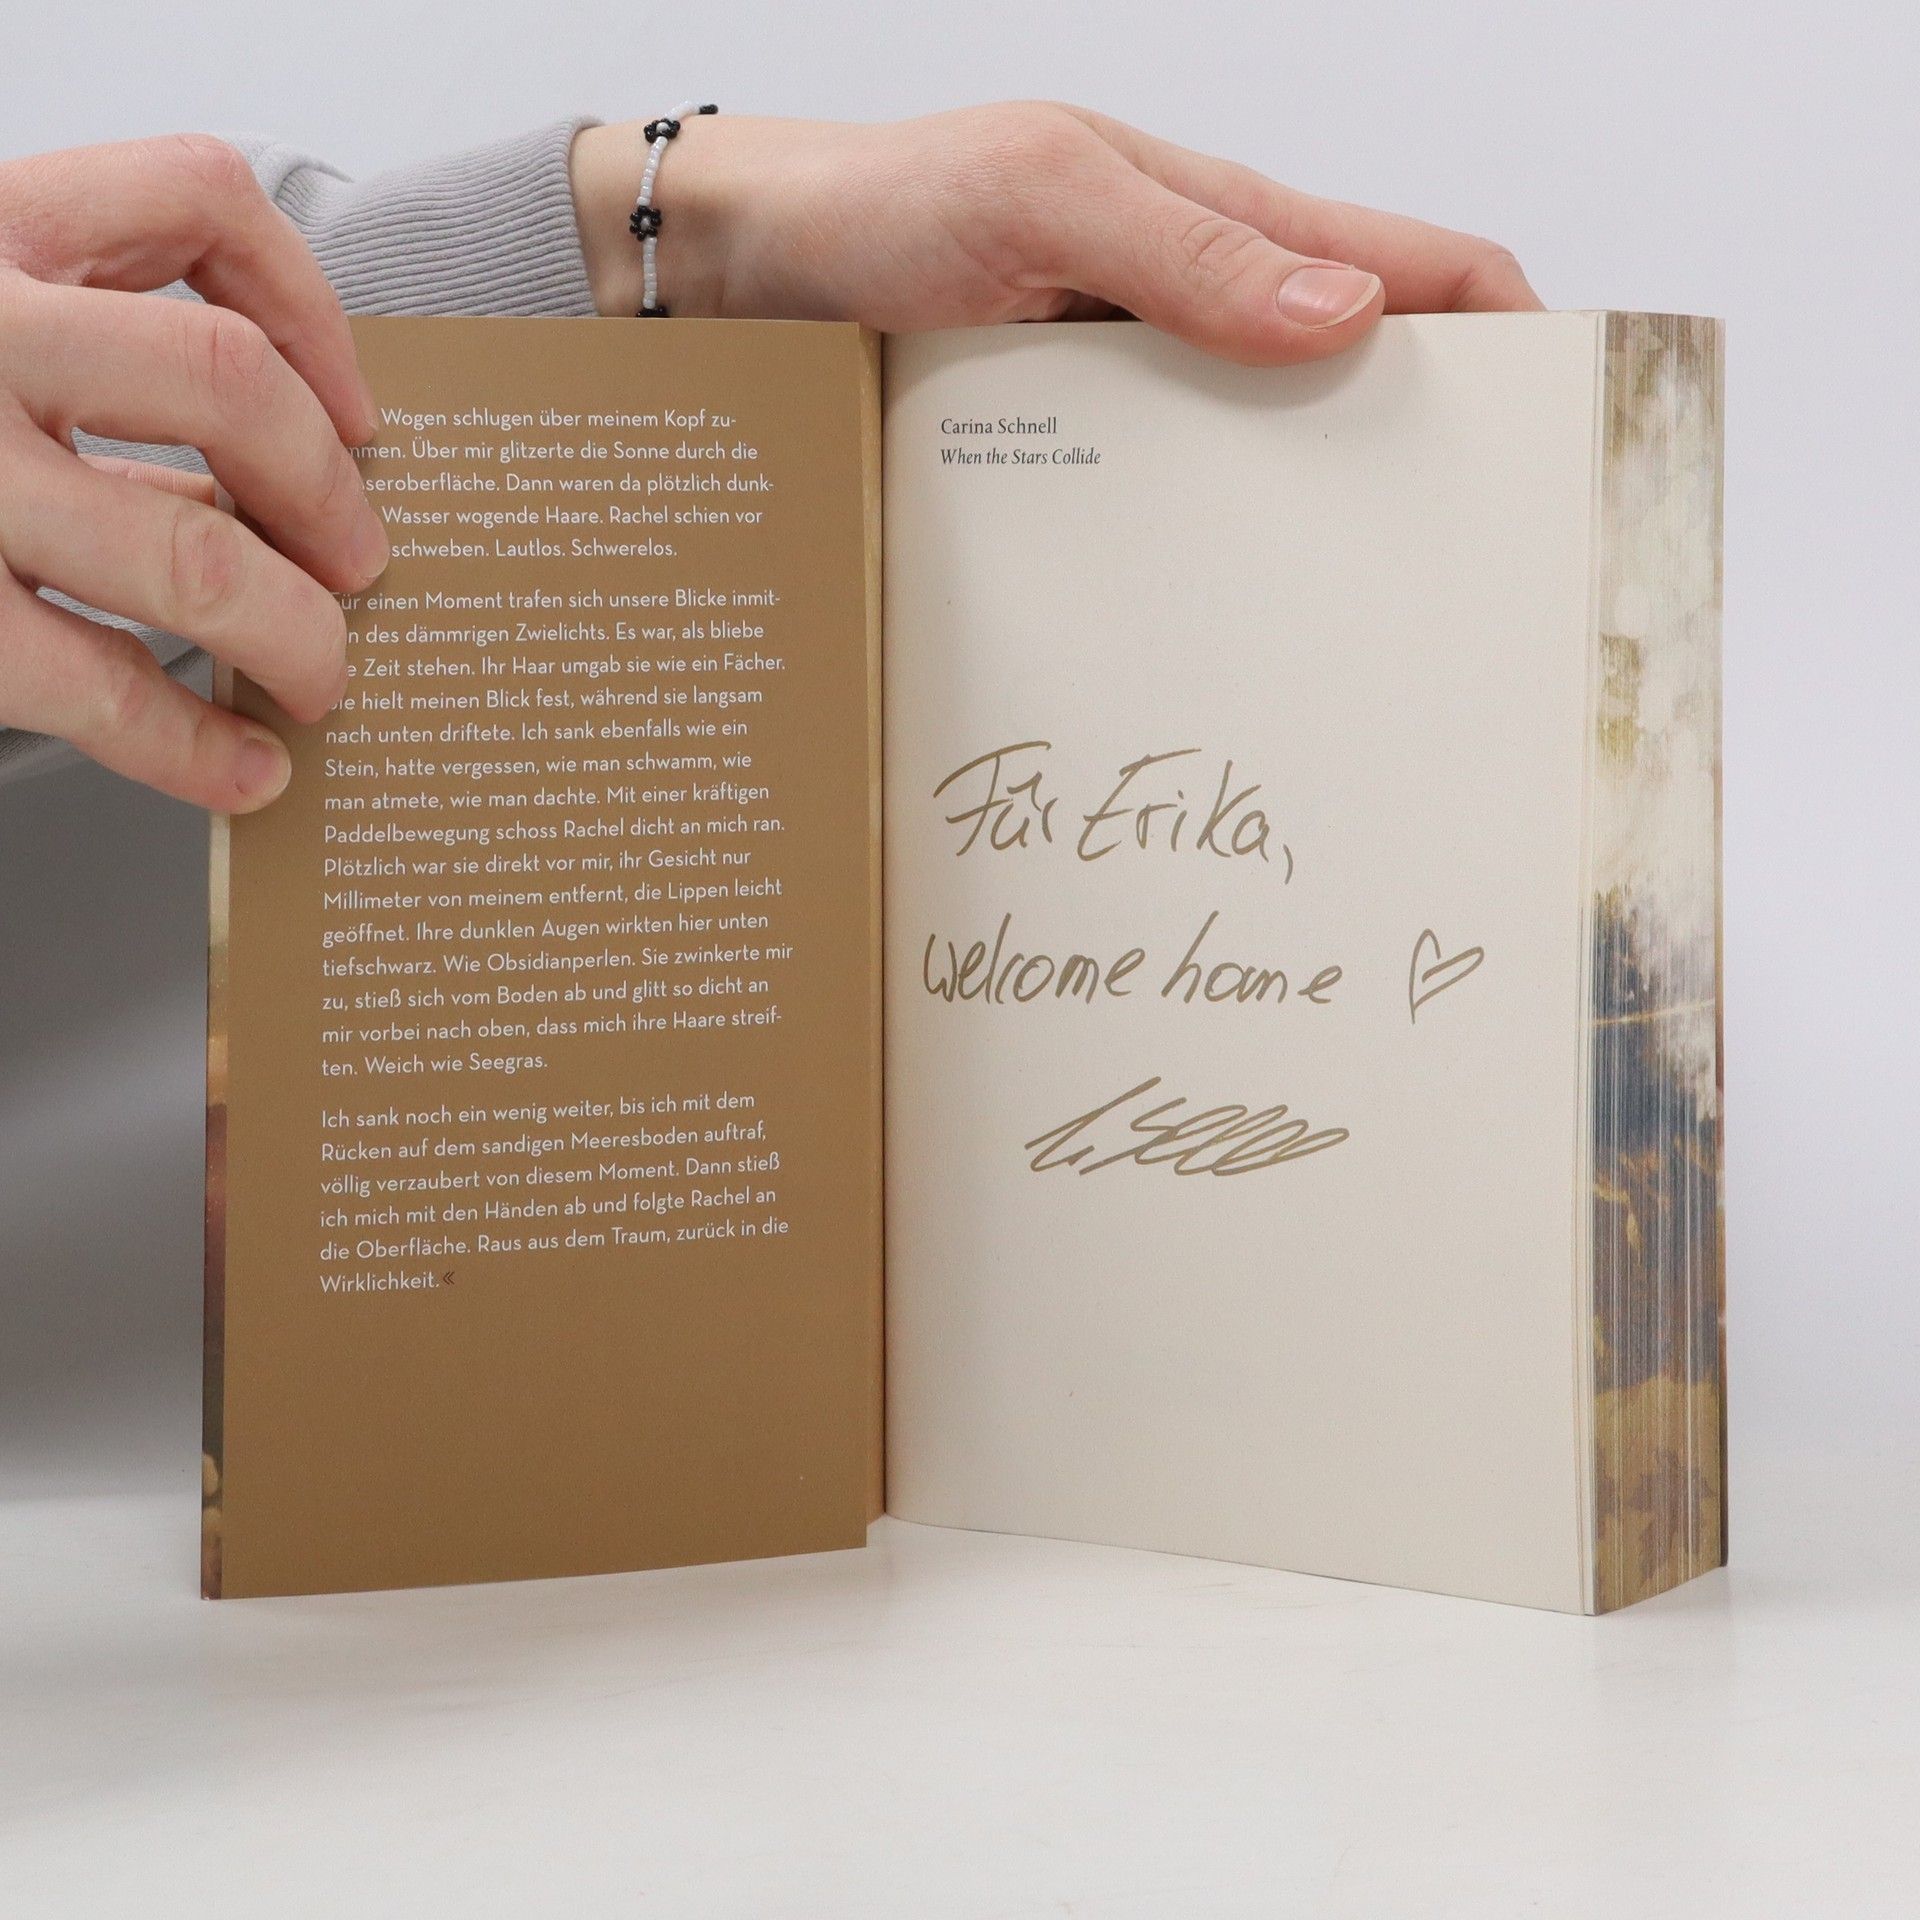 Wogen schlugen über meinem Kopf zu-
mmen. Über mir glitzerte die Sonne durch die
seroberfläche. Dann waren da plötzlich dunk-
Wasser wogende Haare. Rachel schien vor
schweben. Lautlos. Schwerelos.
Für einen Moment trafen sich unsere Blicke inmit-
n des dämmrigen Zwielichts. Es war, als bliebe
e Zeit stehen. Ihr Haar umgab sie wie ein Fächer.
Sie hielt meinen Blick fest, während sie langsam
nach unten driftete. Ich sank ebenfalls wie ein
Stein, hatte vergessen, wie man schwamm, wie
man atmete, wie man dachte. Mit einer kräftigen
Paddelbewegung schoss Rachel dicht an mich ran.
Plötzlich war sie direkt vor mir, ihr Gesicht nur
Millimeter von meinem entfernt, die Lippen leicht
geöffnet. Ihre dunklen Augen wirkten hier unten
tiefschwarz. Wie Obsidianperlen. Sie zwinkerte mir
zu, stieß sich vom Boden ab und glitt so dicht an
mir vorbei nach oben, dass mich ihre Haare streif-
ten. Weich wie Seegras.
Ich sank noch ein wenig weiter, bis ich mit dem
Rücken auf dem sandigen Meeresboden auftraf,
völlig verzaubert von diesem Moment. Dann stieß
ich mich mit den Händen ab und folgte Rachel an
die Oberfläche. Raus aus dem Traum, zurück in die
Wirklichkeit.«
Carina Schnell
When the Stars Collide
Für Erika,
welcome home ♡